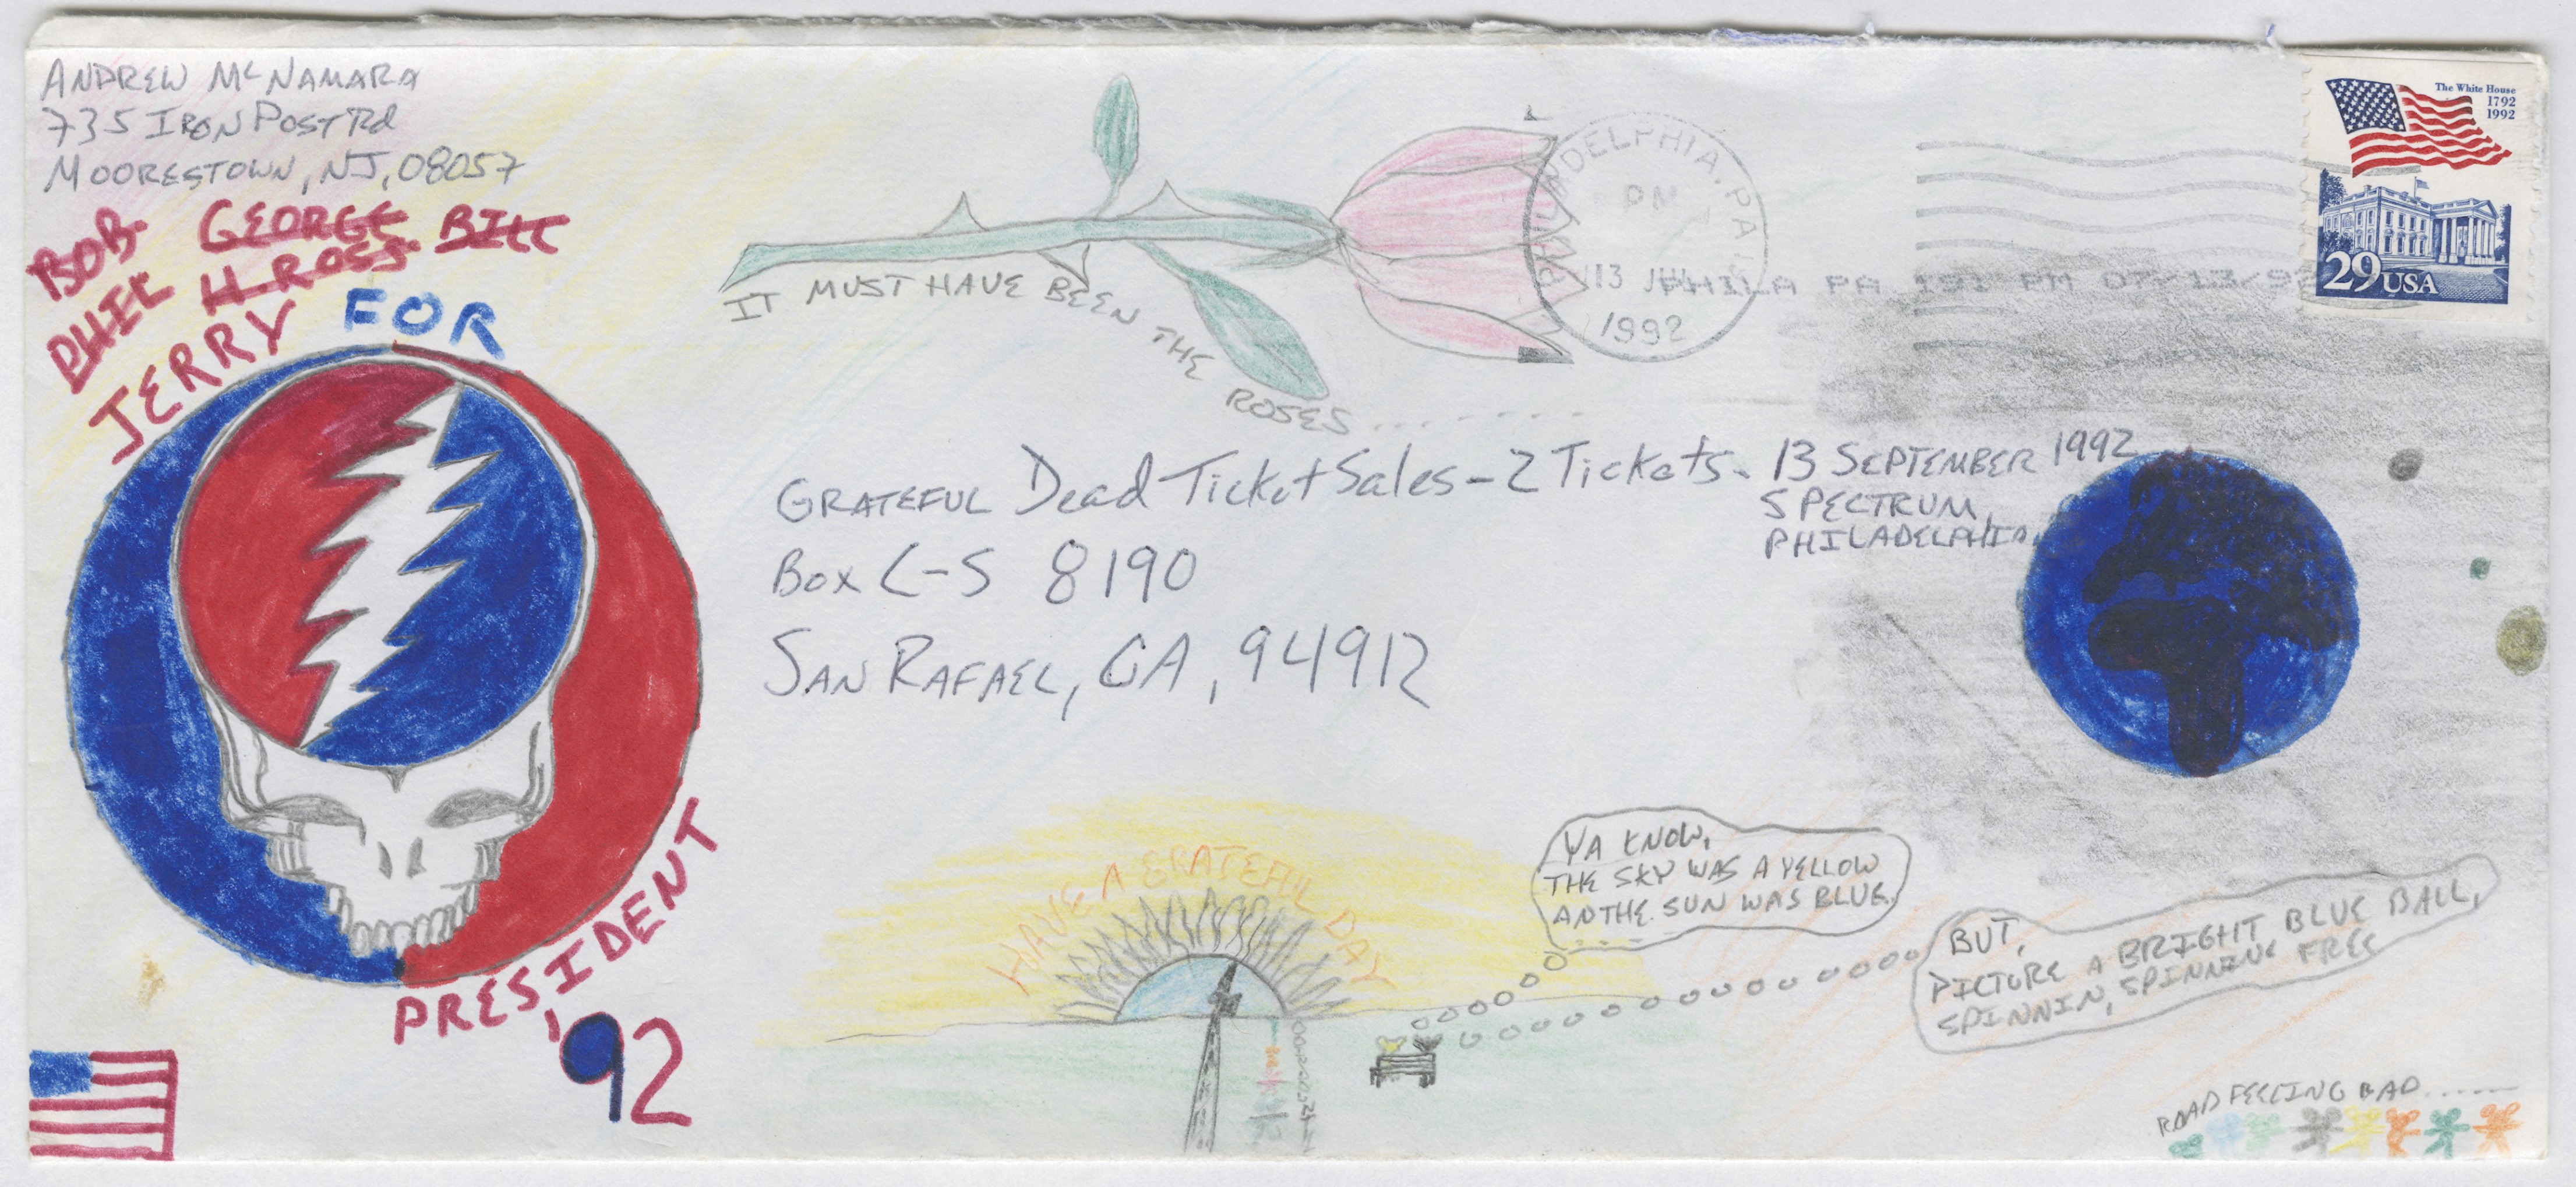 ANDREW McNAMARA
735 IRON POST Rd
MOORESTOWN, NJ, 08057
BOB. GEORGE BILL
PHIL H. ROSS.
JERRY FOR
PRESIDENT
'92
IT MUST HAVE BEEN THE ROSES..........
PHILADELPHIA, PA
PM
13 JUL
1992
PHILA PA 191 PM 07/13/92
The White House
1792
1992
29 USA
GRATEFUL Dead Ticket Sales - 2 Tickets - 13 SEPTEMBER 1992
SPECTRUM,
PHILADELPHIA,
Box C-S 8190
SAN RAFAEL, CA, 94912
HAVE A GRATEFUL DAY
YA KNOW,
THE SKY WAS A YELLOW
AN THE SUN WAS BLUE.
BUT,
PICTURE A BRIGHT BLUE BALL,
SPINNIN, SPINNING FREE
ROAD FEELING BAD......